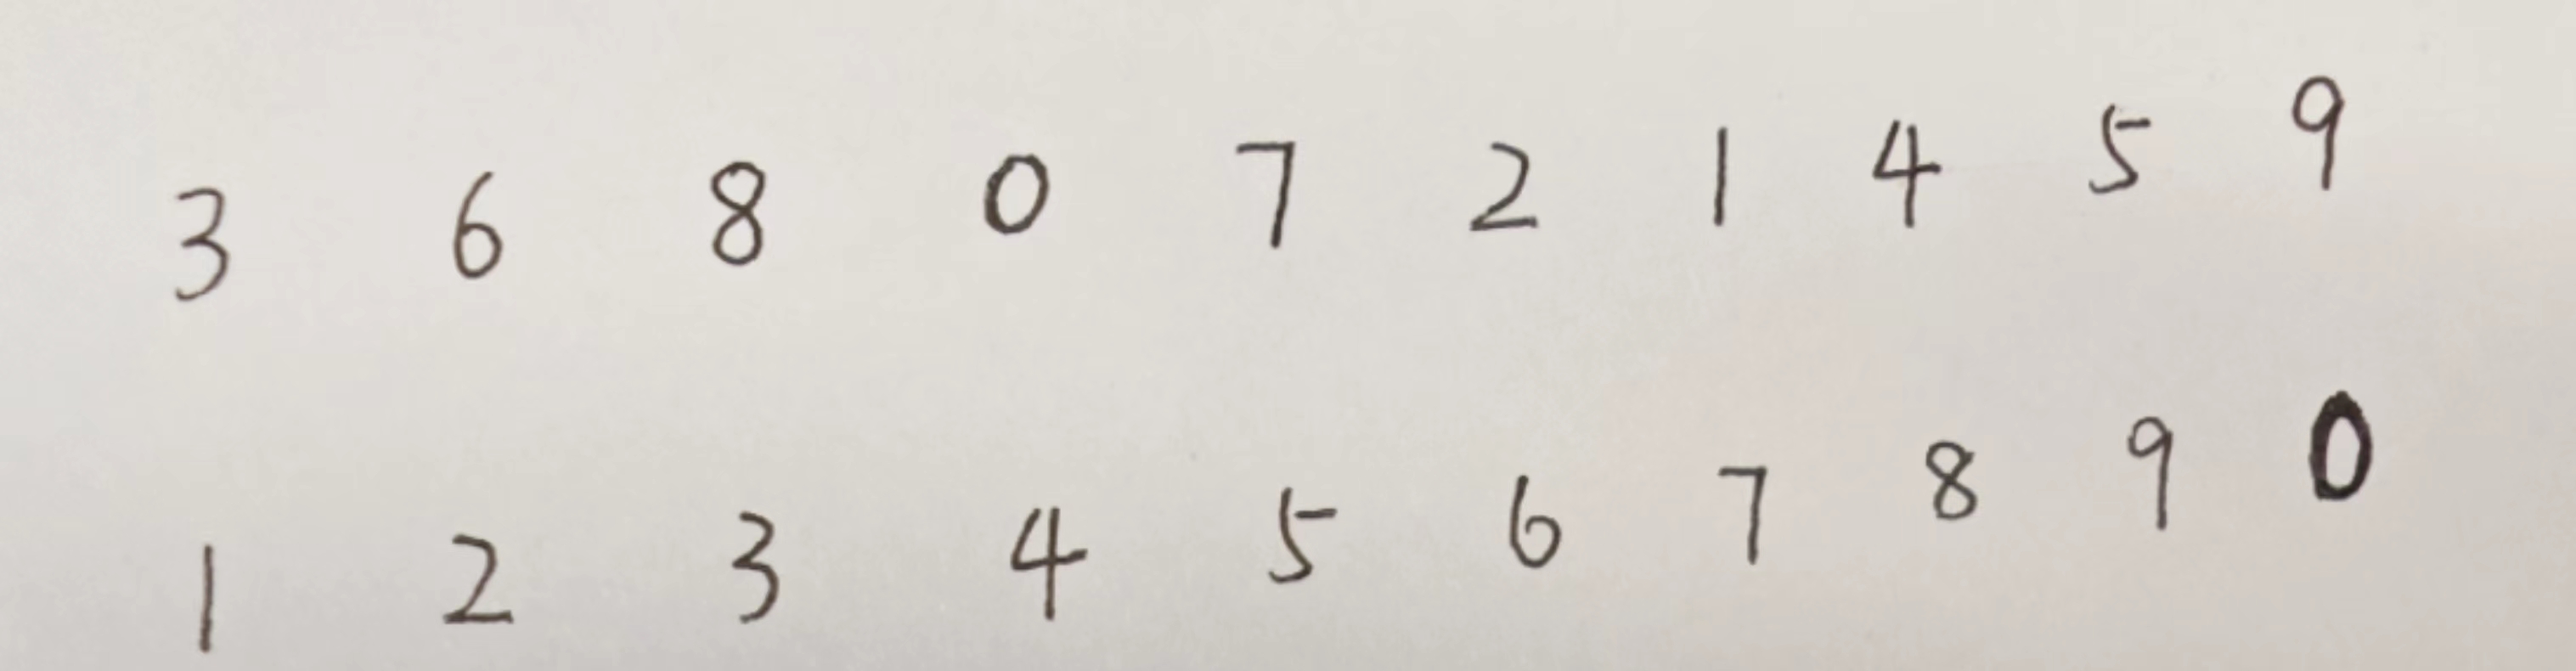 3 6 8 0 7 2 1 4 5 9
1 2 3 4 5 6 7 8 9 0